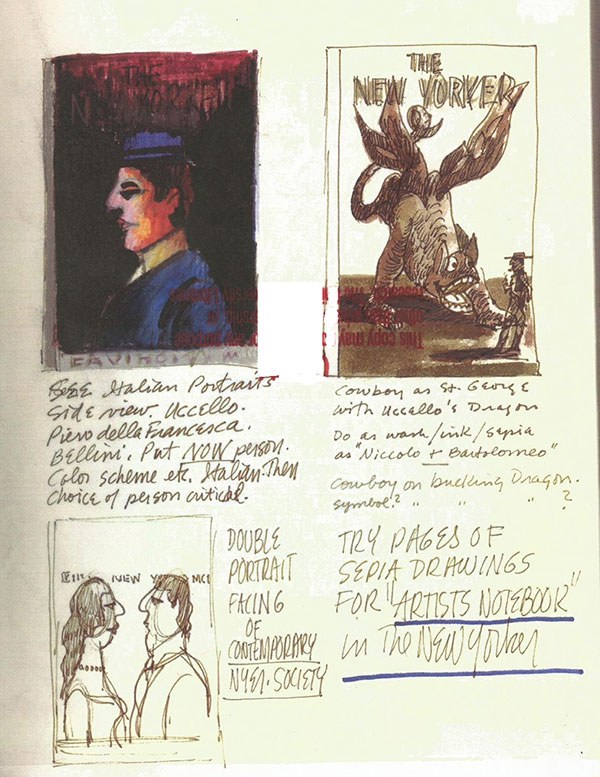 THE
NEW YORKER
THE
NEW YORKER
See Italian Portraits
Side view. Uccello.
Piero della Francesca.
Bellini. Put NOW person.
Color scheme etc. Italian-Then
Choice of person critical.
Cowboy as St. George
with Uccello's Dragon
Do as wash/ink/sepia
as "Niccolo + Bartolomeo"
Cowboy on bucking Dragon.
symbol? " " " ?
NEW
DOUBLE
PORTRAIT
FACING
OF
CONTEMPORARY
SOCIETY
TRY PAGES OF
SEPIA DRAWINGS
FOR "ARTISTS NOTEBOOK"
in The New Yorker
This copy may